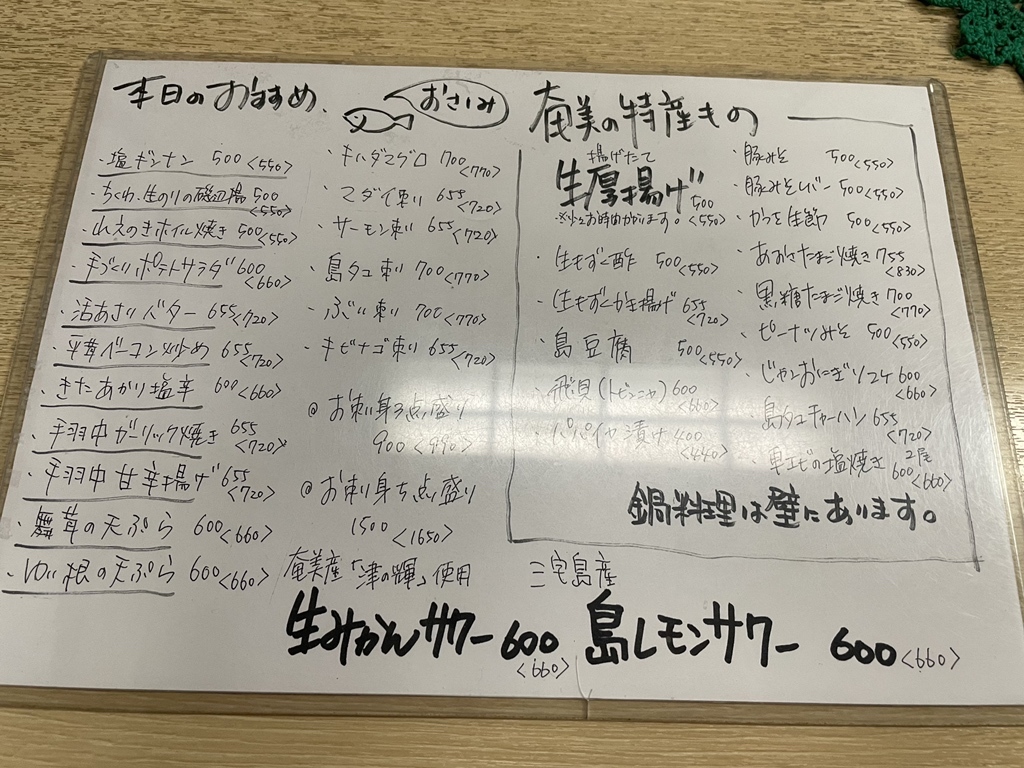 本日のおすすめ
・塩ギンナン 500<550>
・ちくわ、生のりの磯辺揚 500<550>
・山えのきホイル焼き 500<550>
・手づくりポテトサラダ 600<660>
・活あさりバター 655<720>
・平茸ベーコン炒め 655<720>
・きたあかり塩辛 600<660>
・手羽中ガーリック焼き 655<720>
・手羽中甘辛揚げ 655<720>
・舞茸の天ぷら 600<660>
・ゆり根の天ぷら 600<660>
おさしみ
・キハダマグロ 700<770>
・マダイ刺し 655<720>
・サーモン刺し 655<720>
・島タコ刺し 700<770>
・ぶり刺し 700<770>
・キビナゴ刺し 655<720>
@お刺し身3点盛り
900<990>
@お刺り身5点盛り
1500<1650>
奄美の特産もの
揚げたて
生厚揚げ 500<550>
※少しお時間かかります。
・生もずく酢 500<550>
・生もずくかき揚げ 655<720>
・島豆腐 500<550>
・飛貝(トビンニャ) 600<660>
・パパイヤ漬け 400<440>
・豚みそ 500<550>
・豚みそレバー 500<550>
・かつを生節 500<550>
・あおさたまご焼き 755<830>
・黒糖たまご焼き 700<770>
・ピーナツみそ 500<550>
・じゃこおにぎり2ケ 600<660>
・島タコチャーハン 655<720>
・車エビの塩焼き 2尾 600<660>
鍋料理は壁にあります。
奄美産「津の輝」使用
生みかんサワー 600<660>
三宅島産
島レモンサワー 600<660>